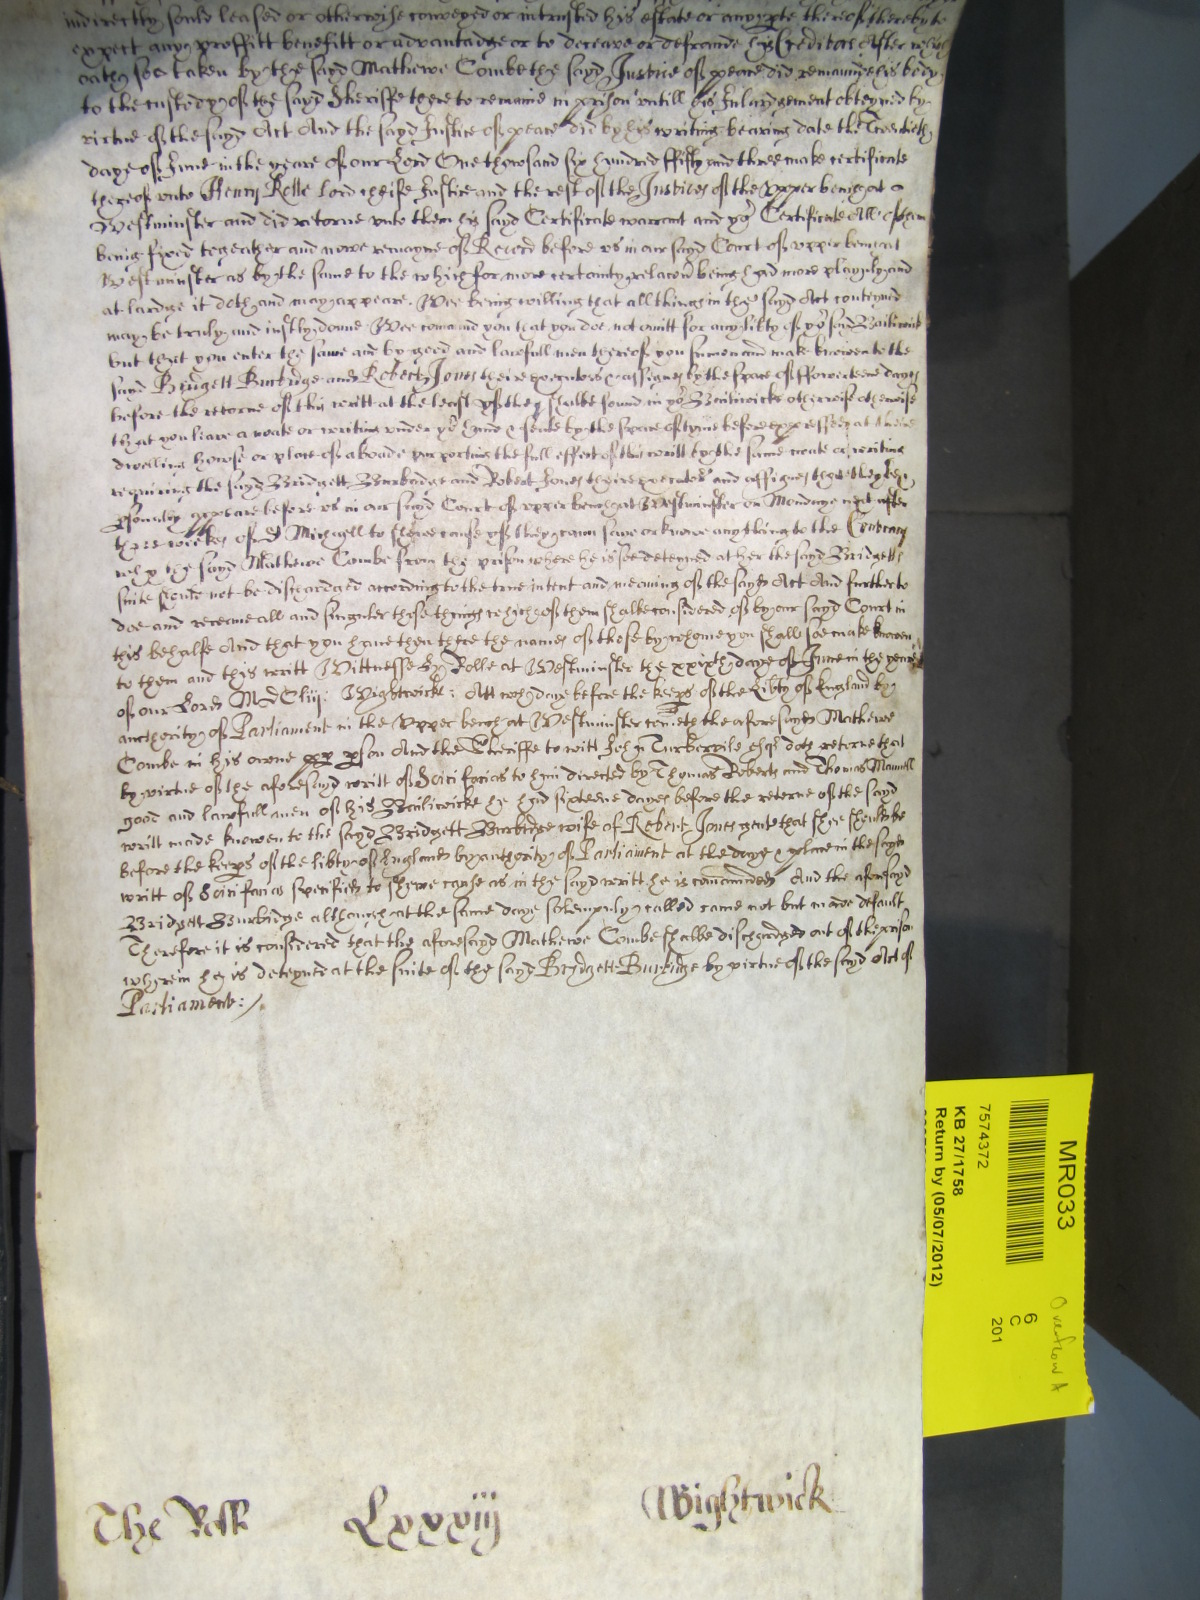 indirectly sould leased or otherwise conveyed or intrusted his estate or any pte thereof thereby to
expect any proffitt benefitt or advantadge or to deceave or defraude his Creditors After which
oath soe taken by the sayd Mathewe Combe the sayd Justice of peace did remaunde his body
to the custody of the sayd Sheriffe there to remaine in prison untill his Inlardgement obteyned by
virtue of the sayd Act And the sayd Justice of peace did by his writing bearing date the Twentieth
daye of June in the yeare of our Lord One thowsand six hundred fifty and three make certificate
thereof unto Henry Rolle Lord cheife Justice and the rest of the Justices of the Upper bench at
Westminster and did retorne unto them his sayd Certificate warrant and yor Certificate All of them
being fixed togeather and nowe remayne of Record before us in our sayd Court of upper bench at
Westminster as by the same to the which for more certainty relacon being had more playnly and
at lardge it doth and may appeare. Wee being willing that all things in the sayd Act conteyned
may be truly and iustly donne Wee comand you that you doe not omitt for any libty of yor sayd Bailiwick
but that you enter the same and by good and lawfull men thereof you sumon and make knowen to the
sayd Bridgett Burbidge and Robert Jones their executors & assignes by the space of fowerteene dayes
before the retorne of this writt at the least yf they shalbe found in yor Bailiwicke otherwise otherwise
that you leave a noate or writing under yor hand & seale by the space of tyme before expressed at their
dwelling howse or place of aboade purporting the full effect of this writt by the same noate or writing
requiring the sayd Bridgett Burbidge and Robert Jones their executors and assignes that they be
psonally appeare before us in our sayd Court of upper bench at Westminster on Mondaye next after
three weekes of St Michaell to shewe cause yf they cann saye or knowe any thing to the Contrary
why the sayd Mathewe Combe from the prison where he is soe deteyned at her the sayd Bridgetts
suite should not be dischardged according to the true intent and meaning of the sayd Act And further to
doe and receave all and singuler those things which of them shalbe considered of by our sayd Court in
this behalfe And that you have then there the names of those by whome you shall soe make knowen
to them and this writt Wittnesse H Rolle at Westminster the xxixth daye of June in the yeare
of our Lord MDCliij: Wightwicke: Att wch daye before the keeps of the Libty of England by
aucthority of Parliament in the Upper bench at Westminster cometh the aforesayd Mathewe
Combe in his owne pson And the Sheriffe to witt John Turbervile Esqr doth retorne that
by virtue of the aforesayd writt of Scire facias to him directed by Thomas Roberts and Thomas Maunsell
good and lawfull men of his Bailiwicke he had sixteene dayes before the retorne of the sayd
writt made knowen to the sayd Bridgett Burbidge wife of Robert Jones gent that shee should be
before the keeps of the libty of England by authority of Parliament at the daye & place in the sayd
writt of Scire facias specified to shewe cause as in the sayd writt he is comanded And the aforesayd
Bridgett Burbidge although at the same daye solempnly called came not but made default
Therefore it is considered that the aforesayd Mathewe Combe shalbe dischardged out of the prison
wherein he is deteyned at the suite of the sayd Bridgett Burbidge by virtue of the sayd Act of
Parliament:
The Rolle Lxxxiij Wightwick
MR033
7574372
KB 27/1758
Return by (05/07/2012)
6
C
201
Overflow A